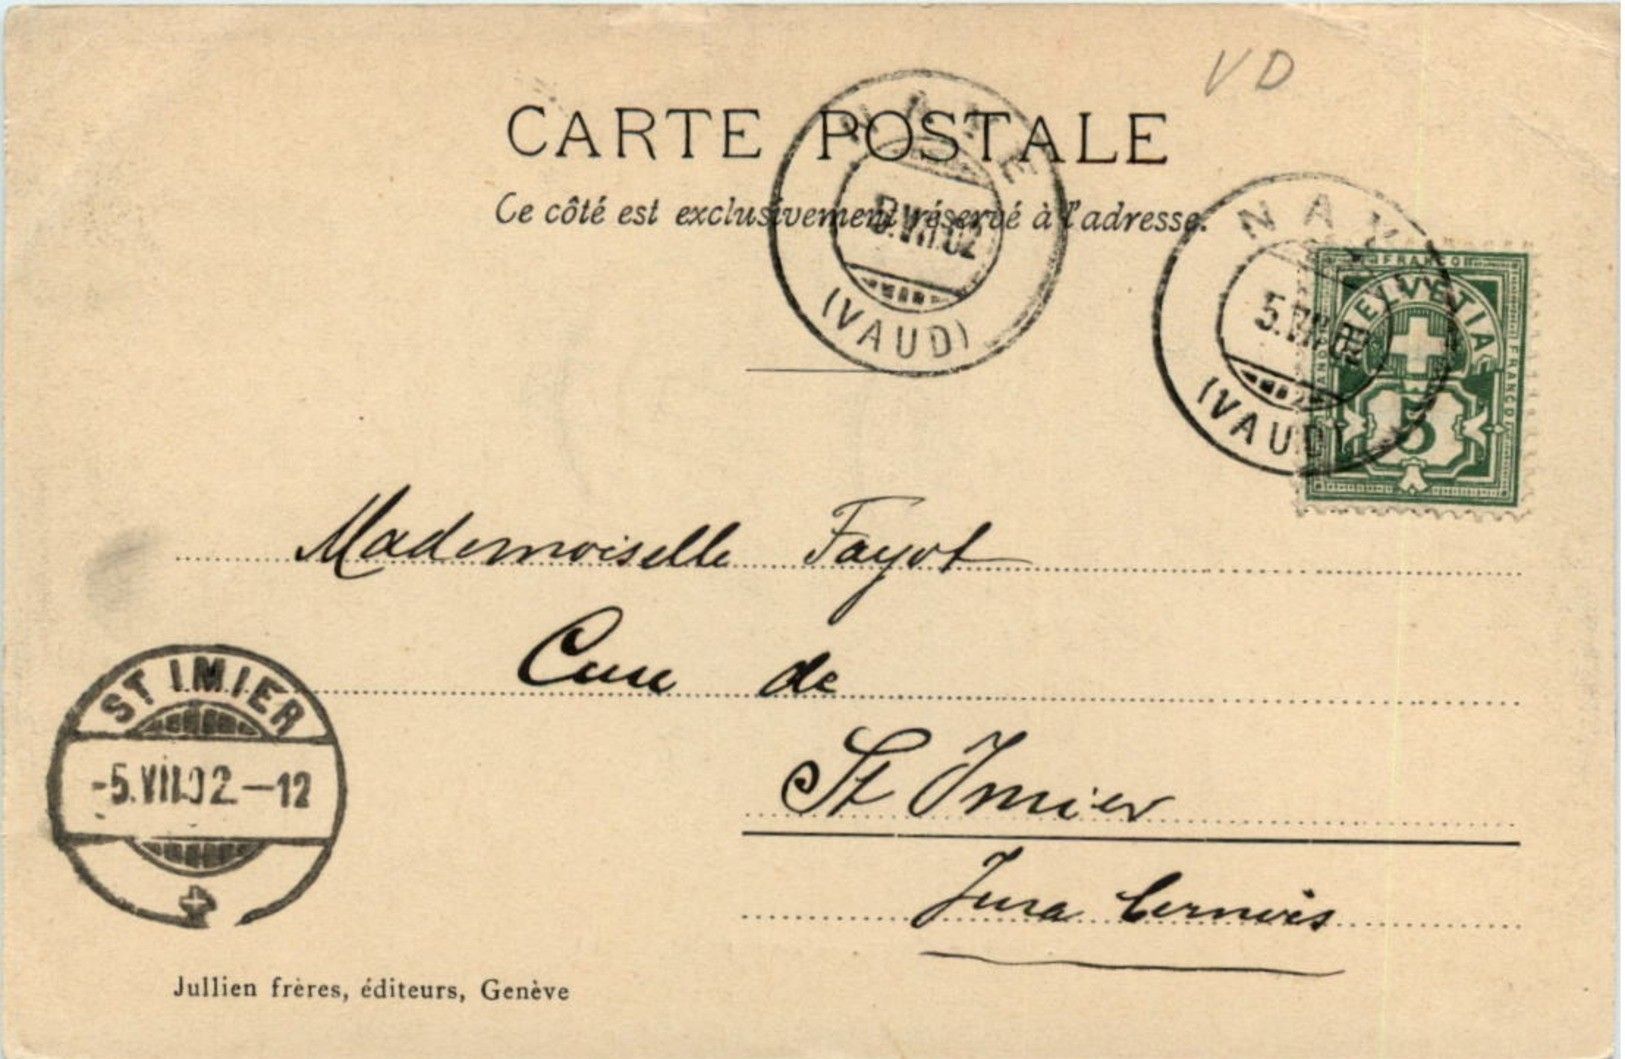 VD
CARTE POSTALE
Ce côté est exclusivement réservé à l'adresse.
5.VII.02
(VAUD)
5.VII
(VAUD)
FRANCO
HELVETIA
FRANCO
5
Mademoiselle Fayot
Cure de
St Imier
Jura bernois
ST IMIER
-5.VII.02.-12
Jullien frères, éditeurs, Genève